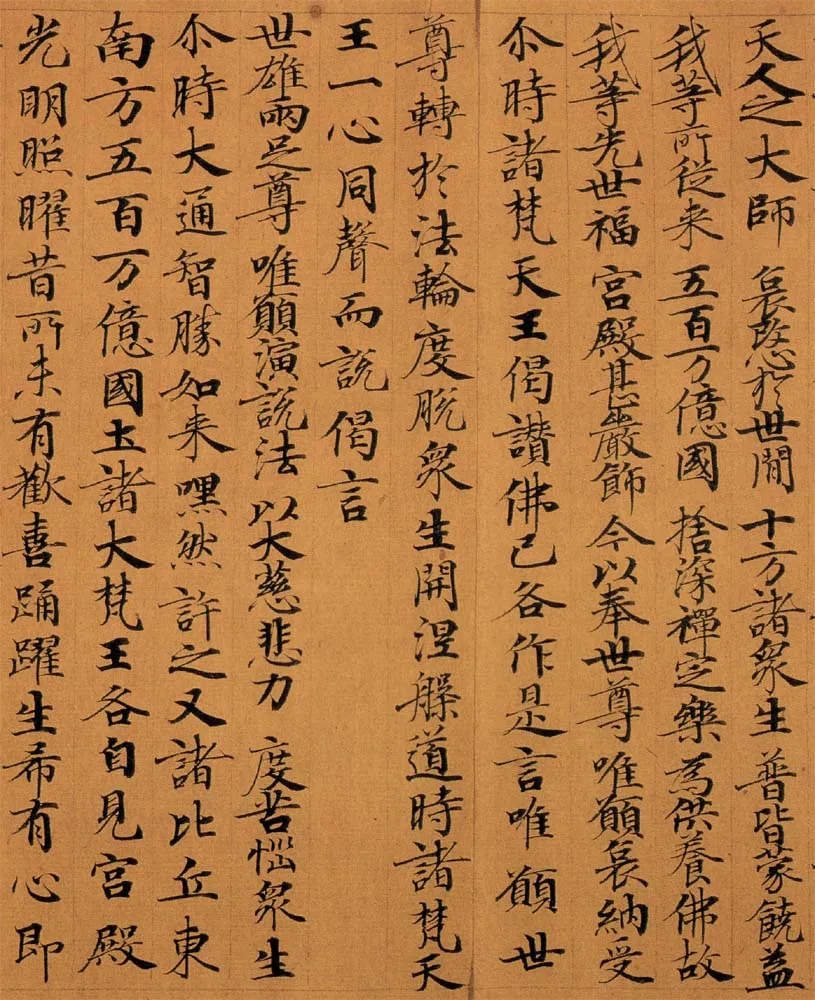 天人之大師 哀愍於世間 十方諸衆生 普皆蒙饒益
我等所從来 五百万億國 捨深禪定樂 為供養佛故
我等先世福 宮殿甚嚴飾 今以奉世尊 唯願哀納受
尒時諸梵天王偈讚佛已各作是言唯願世
尊轉於法輪度脫衆生開涅槃道時諸梵天
王一心同聲而說偈言
世雄兩足尊 唯願演說法 以大慈悲力 度苦惱衆生
尒時大通智勝如来嘿然許之又諸比丘東
南方五百万億國土諸大梵王各自見宮殿
光明照曜昔所未有歡喜踊躍生希有心即